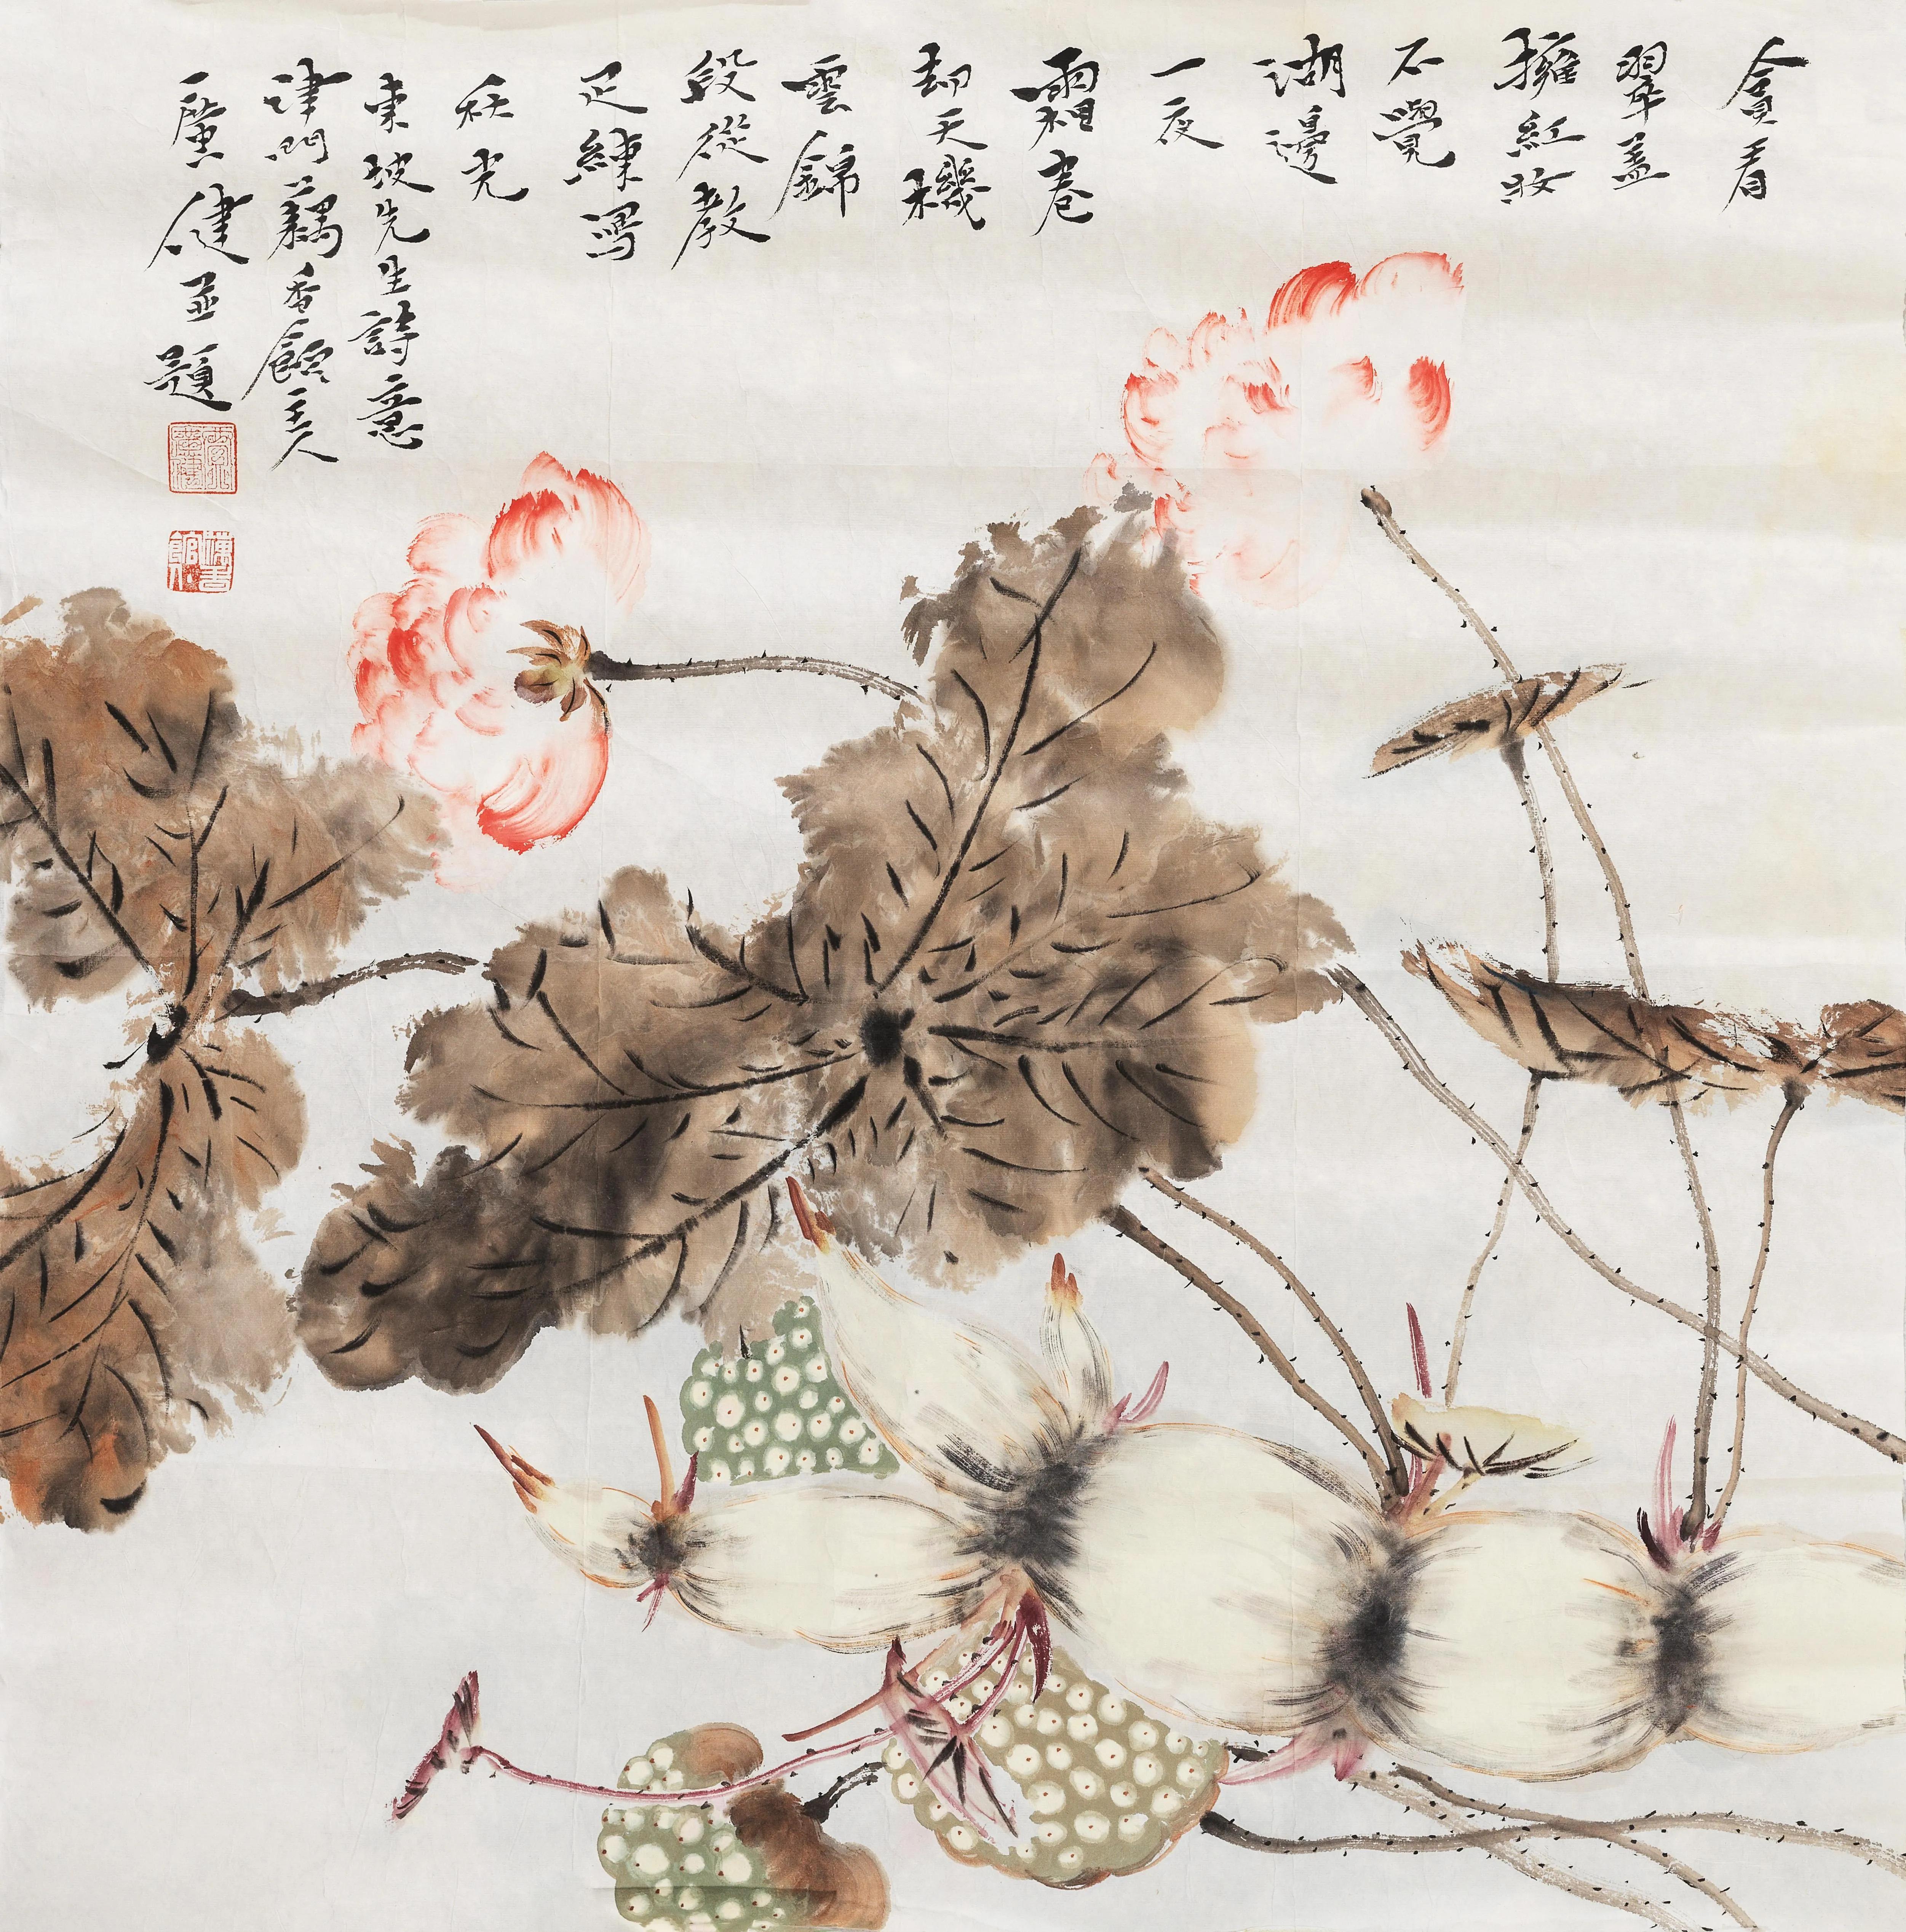 貪看
翠蓋
擁紅妝
不覺
湖邊
一夜
霜卷
却天機
雲錦
段從教
疋練寫
秋光
東坡先生詩意
津門藕香館主人
健並題
藕香館